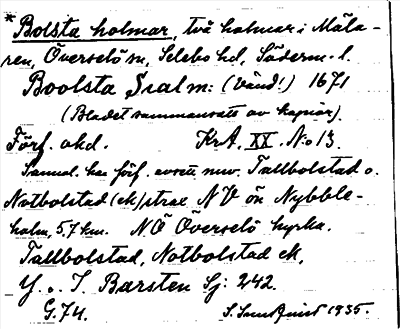 * Bolsta holmar, två holmar i Mäla-
ren, Överselö sn, Selebo hd, Söderm. l.
Boolsta Sialm: (vänd!) 1671
(Bladet sammansatt av kopior).
Förf. okd. KrA. XX. No 13.
Sannol. har förf. avsett nuv. Tallbolstad o.
Notbolstad (ek) strax NV ön Nybble-
holm, 5,7 km. NÖ Överselö kyrka.
Tallbolstad, Notbolstad ek,
Y. o. I. Barsten Sj: 242.
G. 74. S. Sundquist 1935.